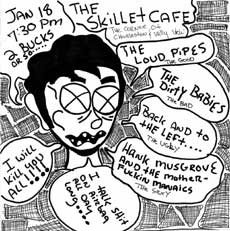 JAN 18
7:30 PM
2 BUCKS
OR SO...
THE
SKILLET CAFE
THE CORNER OF
CHARLESTON &
THE LOUD PIPES
THE GOOD
THE
DIRTY BABIES
THE BAD
BACK AND TO
THE LEFT....
THE UGLY
HANK MUSGROVE
AND THE MOTHER-
FUCKIN MANIACS
THE SEXY
I WILL
KILL YOU
ALL!!...
OH
TALK SHIT
PITBULL
ALL DAY
LONG....